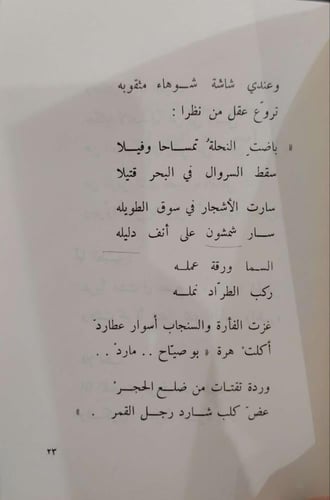 وعندي شاشة شوهاء مثقوبه
تروّع عقل من نظرا :
« باضتِ النحلةُ تمساحا وفيلا
سقط السروال في البحر قتيلا
سارت الأشجار في سوق الطويله
سار شمشون على أنف دليله
السما ورقة عمله
ركب الطرّاد نمله
غزت الفأرة والسنجاب أسوار عطاردْ
أكلتْ هرة « بو صيّاح .. ماردْ ..
وردة تقتات من ضلع الحجرْ
عضّ كلب شارد رجل القمر . »
٢٣